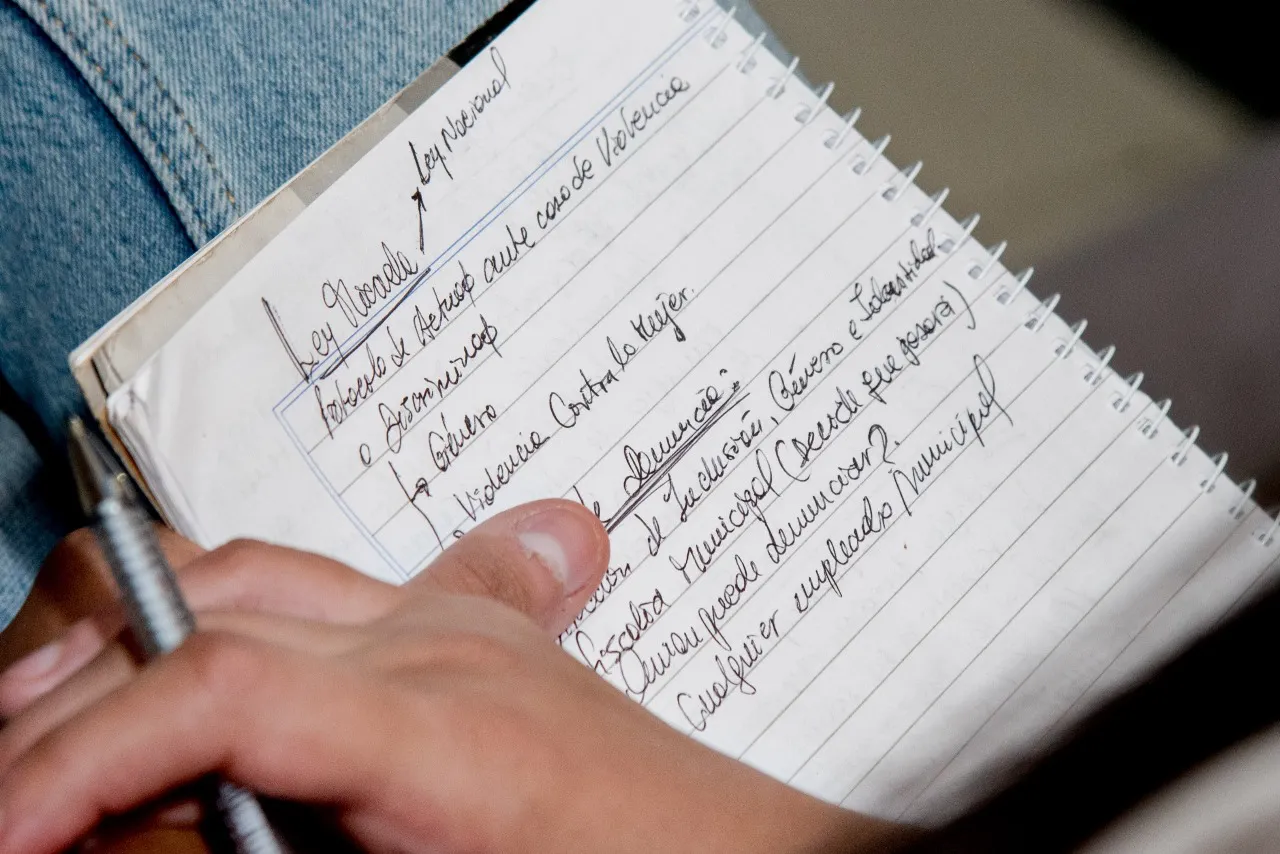 Ley Micaela → Ley Nacional
Protocolo de Actuac° ante caso de Violencia
o Discriminac°
↳ Género
↳ Violencia Contra la Mujer.
de denuncia:
de Inclusión, Género e Identidad
Fiscalía Municipal (decide que pasará)
Quien puede denunciar?
Cualquier empleado Municipal